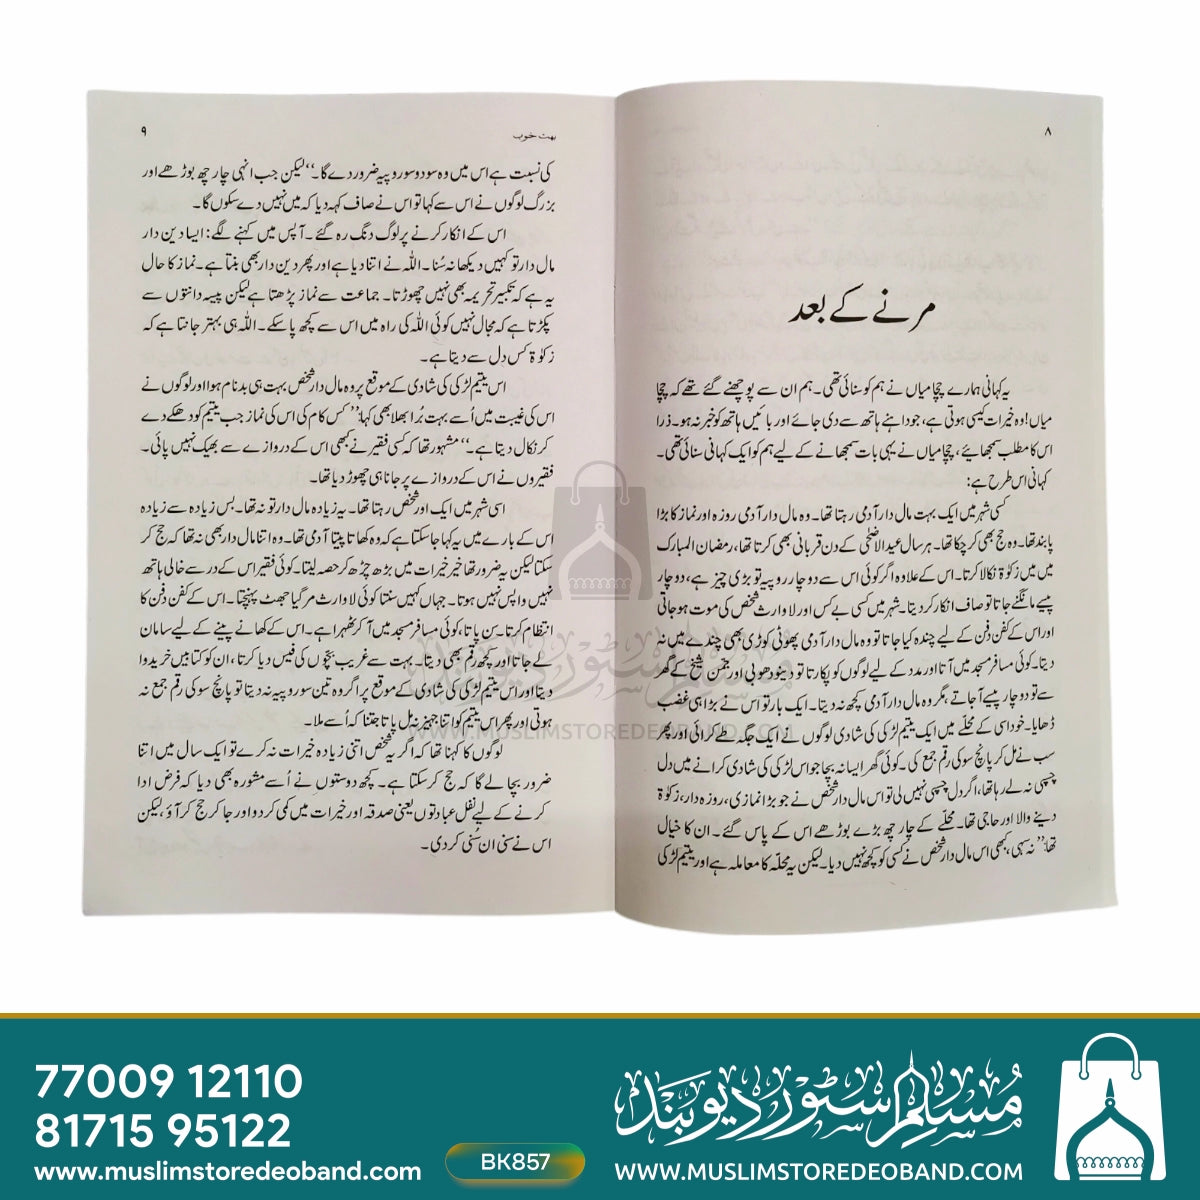 ۸
مرنے کے بعد
یہ کہانی ہمارے چچا میاں نے ہم کو سنائی تھی۔ ہم ان سے پوچھنے گئے تھے کہ چچا
میاں! وہ خیرات کیسی ہوتی ہے، جو داہنے ہاتھ سے دی جائے اور بائیں ہاتھ کو خبر نہ ہو۔ ذرا
اس کا مطلب سمجھائیے، چچا میاں نے یہی بات سمجھانے کے لیے ہم کو ایک کہانی سنائی تھی۔
کہانی اس طرح ہے:
کسی شہر میں ایک بہت مال دار آدمی رہتا تھا۔ وہ مال دار آدمی روزہ اور نماز کا بڑا
پابند تھا۔ وہ حج بھی کر چکا تھا۔ ہر سال عید الاضحٰی کے دن قربانی بھی کرتا تھا، رمضان المبارک
میں میں زکوٰۃ نکالا کرتا۔ اس کے علاوہ اگر کوئی اس سے دو چار روپیہ تو بڑی چیز ہے، دو چار
پیسے مانگنے جاتا تو صاف انکار کر دیتا۔ شہر میں کسی بے کس اور لاوارث شخص کی موت ہو جاتی
اور اس کے کفن دفن کے لیے چندہ کیا جاتا تو وہ مال دار آدمی پھوٹی کوڑی بھی چندے میں نہ
دیتا۔ کوئی مسافر مسجد میں آتا اور مدد کے لیے لوگوں کو پکارتا تو دینو دھوبی اور جمن شیخ کے گھر
سے تو دو چار پیسے آ جاتے، مگر وہ مال دار آدمی کچھ نہ دیتا۔ ایک بار تو اس نے بڑا ہی غضب
ڈھایا۔ خود اسی کے محلّے میں ایک یتیم لڑکی کی شادی لوگوں نے ایک جگہ طے کرائی اور پھر
سب نے مل کر پانچ سو کی رقم جمع کی۔ کوئی گھر ایسا نہ بچا جو اس لڑکی کی شادی کرانے میں دل
چسپی نہ لے رہا تھا، اگر دل چسپی نہیں لی تو اس مال دار شخص نے جو بڑا نمازی، روزہ دار، زکوٰۃ
دینے والا اور حاجی تھا۔ محلّے کے چار چھ بڑے بوڑھے اس کے پاس گئے۔ ان کا خیال
تھا ”نہ سہی، کبھی اس مال دار شخص نے کسی کو کچھ نہیں دیا۔ لیکن یہ محلّہ کا معاملہ ہے اور یتیم لڑکی
بہت خوب ۹
کی نسبت ہے اس میں وہ سو دو سو روپیہ ضرور دے گا۔“ لیکن جب انہی چار چھ بوڑھے اور
بزرگ لوگوں نے اس سے کہا تو اس نے صاف کہہ دیا کہ میں نہیں دے سکوں گا۔
اس کے انکار کرنے پر لوگ دنگ رہ گئے۔ آپس میں کہنے لگے: ایسا دین دار
مال دار تو کہیں دیکھا نہ سُنا۔ اللہ نے اتنا دیا ہے اور پھر دین دار بھی بنتا ہے۔ نماز کا حال
یہ ہے کہ تکبیر تحریمہ بھی نہیں چھوڑتا۔ جماعت سے نماز پڑھتا ہے لیکن پیسہ دانتوں سے
پکڑتا ہے کہ مجال نہیں کوئی اللہ کی راہ میں اس سے کچھ پا سکے۔ اللہ ہی بہتر جانتا ہے کہ
زکوٰۃ کس دل سے دیتا ہے۔
اس یتیم لڑکی کی شادی کے موقع پر وہ مال دار شخص بہت ہی بدنام ہوا اور لوگوں نے
اس کی غیبت میں اُسے بہت بُرا بھلا بھی کہا: ”کس کام کی اس کی نماز جب یتیم کو دھکے دے
کر نکال دیتا ہے۔“ مشہور تھا کہ کسی فقیر نے کبھی اس کے دروازے سے بھیک نہیں پائی۔
فقیروں نے اس کے دروازے پر جانا ہی چھوڑ دیا تھا۔
اسی شہر میں ایک اور شخص رہتا تھا۔ یہ زیادہ مال دار تو نہ تھا۔ بس زیادہ سے زیادہ
اس کے بارے میں یہ کہا جا سکتا ہے کہ وہ کھاتا پیتا آدمی تھا۔ وہ اتنا مال دار بھی نہ تھا کہ حج کر
سکتا لیکن یہ ضرور تھا خیر خیرات میں بڑھ چڑھ کر حصہ لیتا۔ کوئی فقیر اس کے در سے خالی ہاتھ
نہیں واپس نہیں ہوتا۔ جہاں کہیں سنتا کوئی لاوارث مر گیا جھٹ پہنچتا۔ اس کے کفن دفن کا
انتظام کرتا۔ سن پاتا، کوئی مسافر مسجد میں آ کر ٹھہرا ہے۔ اس کے کھانے پینے کے لیے سامان
لے جاتا اور کچھ رقم بھی دیتا۔ بہت سے غریب بچّوں کی فیس دیا کرتا، ان کو کتابیں خرید وا
دیتا اور اس یتیم لڑکی کی شادی کے موقع پر اگر وہ تین سو روپیہ نہ دیتا تو پانچ سو کی رقم جمع نہ
ہوتی اور پھر اس یتیم کو اتنا جہیز نہ مل پاتا جتنا کہ اُسے ملا۔
لوگوں کا کہنا تھا کہ اگر یہ شخص اتنی زیادہ خیرات نہ کرے تو ایک سال میں اتنا
ضرور بچا لے گا کہ حج کر سکتا ہے۔ کچھ دوستوں نے اُسے مشورہ بھی دیا کہ فرض ادا
کرنے کے لیے نفل عبادتوں یعنی صدقہ اور خیرات میں کمی کر دو اور جا کر حج کر آؤ، لیکن
اس نے سنی ان سُنی کر دی۔
مسلم سٹور دیوبند
WWW.MUSLIMSTOREDEOBAND.COM
77009 12110
81715 95122
www.muslimstoredeoband.com
BK857
مُسلم سٹور دیوبند
WWW.MUSLIMSTOREDEOBAND.COM